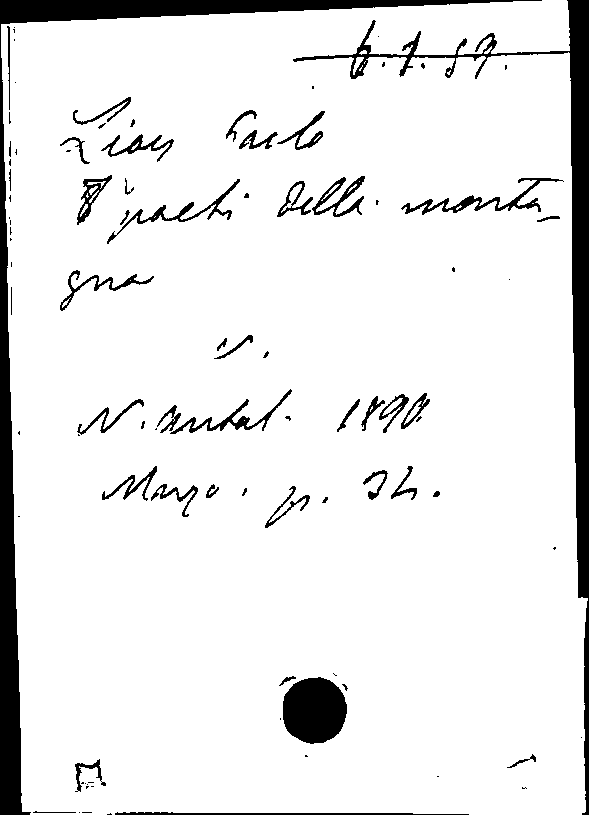 6.1.89.
Lioy Paolo
I poeti della monta-
gna
v.
N. Antol. 1890
Marzo. p. 34.